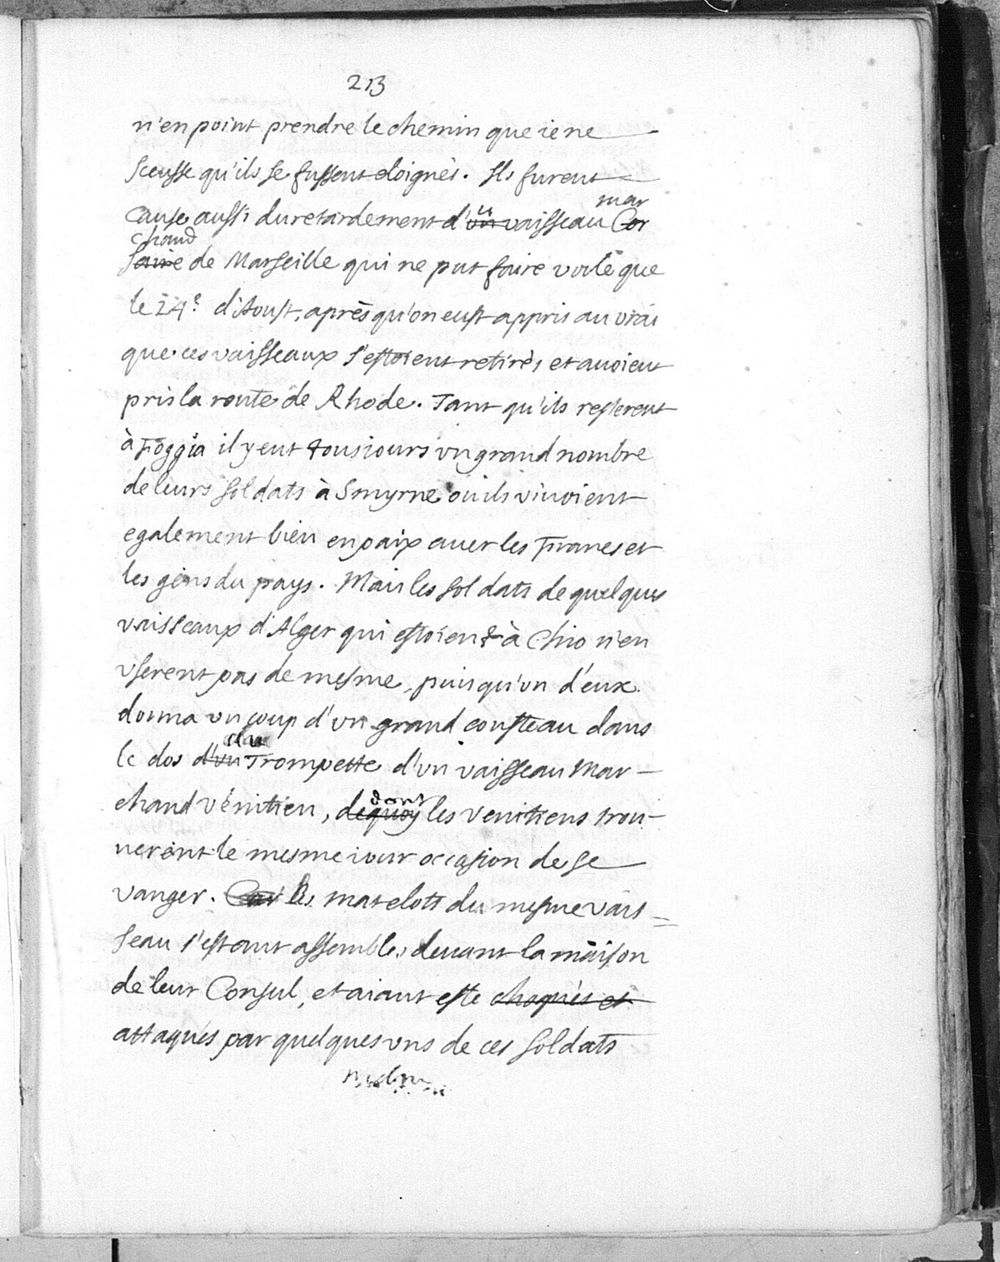 213
n'en point prendre le chemin que ie ne
sceusse qu'ils se fussent eloignés. Ils furent
mar
cause aussi du retardement d'un vaisseau Cor
chand
saire de Marseille qui ne put faire voile que
le 24e d'Aoust, après qu'on eust appris au vrai
que ces vaisseaux s'estoient retirés et avoient
pris la route de Rhode. Tant qu'ils resterent
à Foggia il y eut tousiours vn grand nombre
de leurs soldats à Smyrne où ils vivoient
egalement bien en paix avec les Francs et
les gens du pays. Mais les soldats de quelques
vaisseaux d'Alger qui estoient à Chio n'en
vserent pas de mesme, puisqu'vn d'eux
donna vn coup d'vn grand cousteau dans
du
le dos d'un Trompette d'vn vaisseau Mar-
dont
chand vénitien, dequoy les venitiens trou-
verent le mesme iour occasion de se
vanger. Car les matelots du mesme vais=
seau s'estant assemblés devant la maison
de leur Consul, et aiant esté choqués et
attaqués par quelques vns de ces soldats